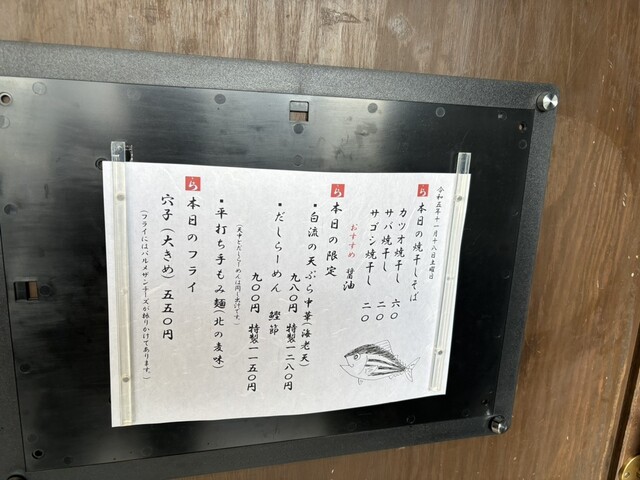 令和五年十一月十八日土曜日
ら 本日の焼干しそば
カツオ焼干し 六〇
サバ焼干し 二〇
サゴシ焼干し 二〇
おすすめ 醤油
ら 本日の限定
・白流の天ぷら中華(海老天)
九八〇円 特製一二八〇円
・だしらーめん 鰹節
九〇〇円 特製一一五〇円
(天中とだしらーめんは同じお汁です。)
・平打ち手もみ麺(北の麦味)
ら 本日のフライ
穴子(大きめ)五五〇円
(フライにはパルメザンチーズが振りかけてあります。)